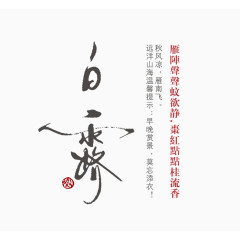 雁陣聲聲蚊欲静,棗紅點點桂流香
秋风凉,雁南飞。
远洋山海温馨提示:早晚赏景,莫忘添衣!
白露